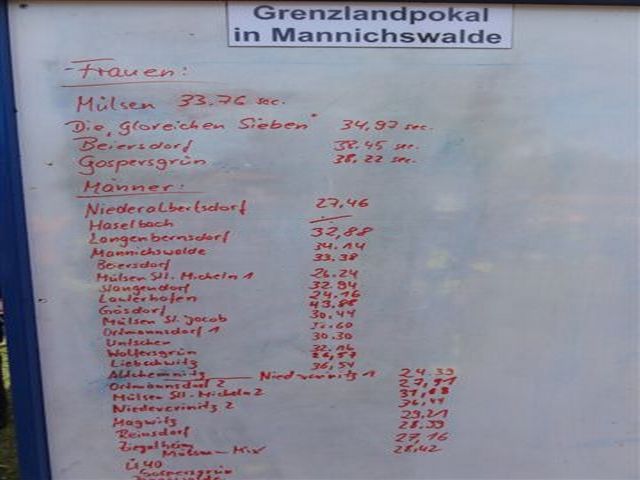 Grenzlandpokal
in Mannichswalde
Frauen:
Mülsen 33.76 sec.
Die "gloreichen Sieben" 34,97 sec.
Beiersdorf 38.45 sec.
Gospersgrün 38,22 sec.
Männer:
Niederalbertsdorf 27,46
Haselbach —
Langenbernsdorf 32,88
Mannichswalde 34.14
Beiersdorf 33.38
Mülsen Stl. Micheln 1 26.24
Stangendorf 32.94
Lauterhofen 24.16
Gösdorf 43.88
Mülsen St. Jacob 30.44
Ortmannsdorf 1
Untschen 30.30
Wolfersgrün 32.16
Liebschwitz
Altchemnitz 36,54
Niedercrinitz 1 24.39
Ortmannsdorf 2 27,91
Mülsen Stl. Micheln 2
Niedercrinitz 2
Magwitz 29.21
Reinsdorf 28.39
Ziegelheim 27,16
Mülsen - Mix 28,42
Ü 40
Gospersgrün